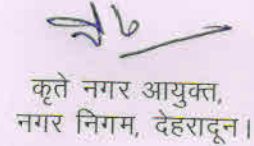 कृते नगर आयुक्त,
नगर निगम, देहरादून।